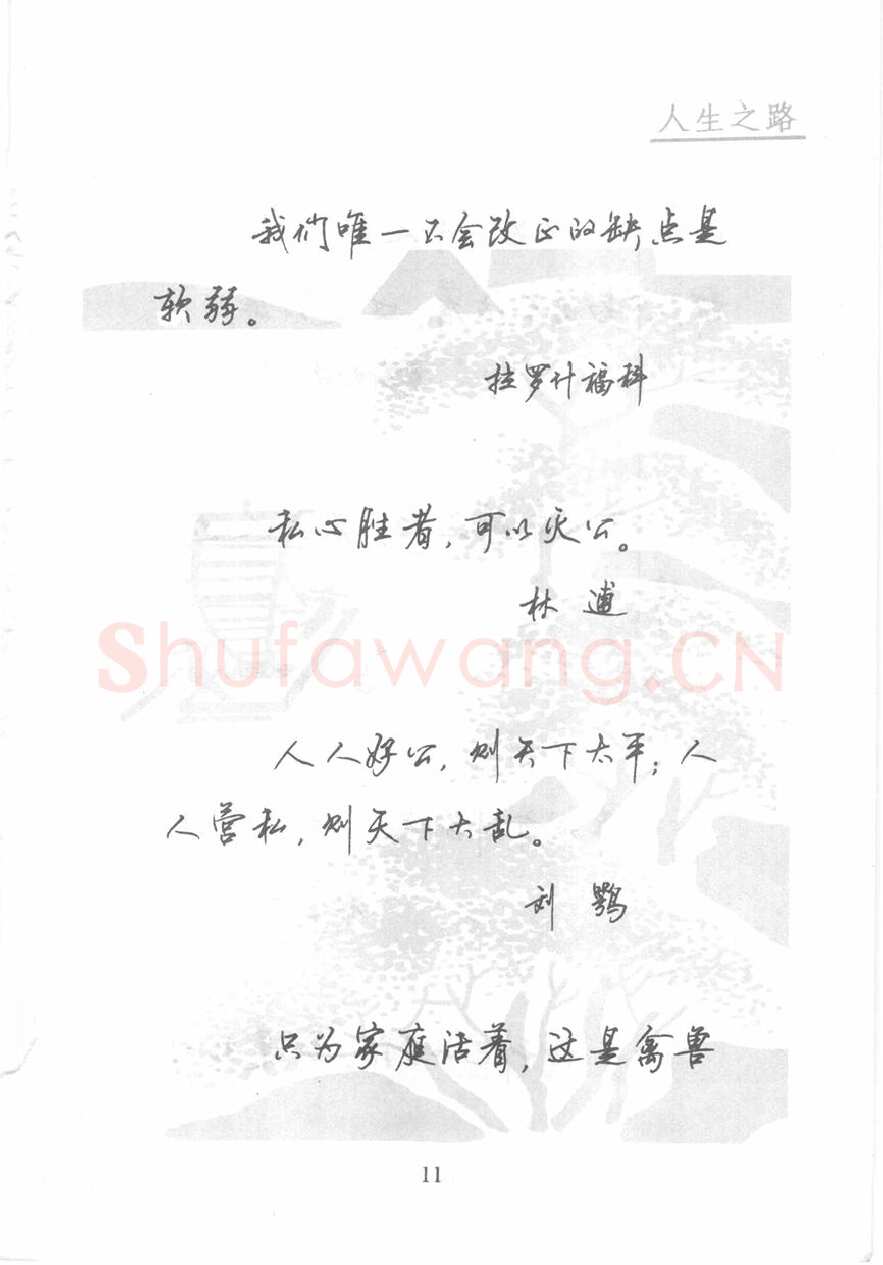 人生之路
我们唯一不会改正的缺点是
软弱。
拉罗什福科
私心胜者，可以灭公。
林逋
人人好公，则天下太平；人
人营私，则天下大乱。
刘鹗
只为家庭活着，这是禽兽
Shufawang.CN
11